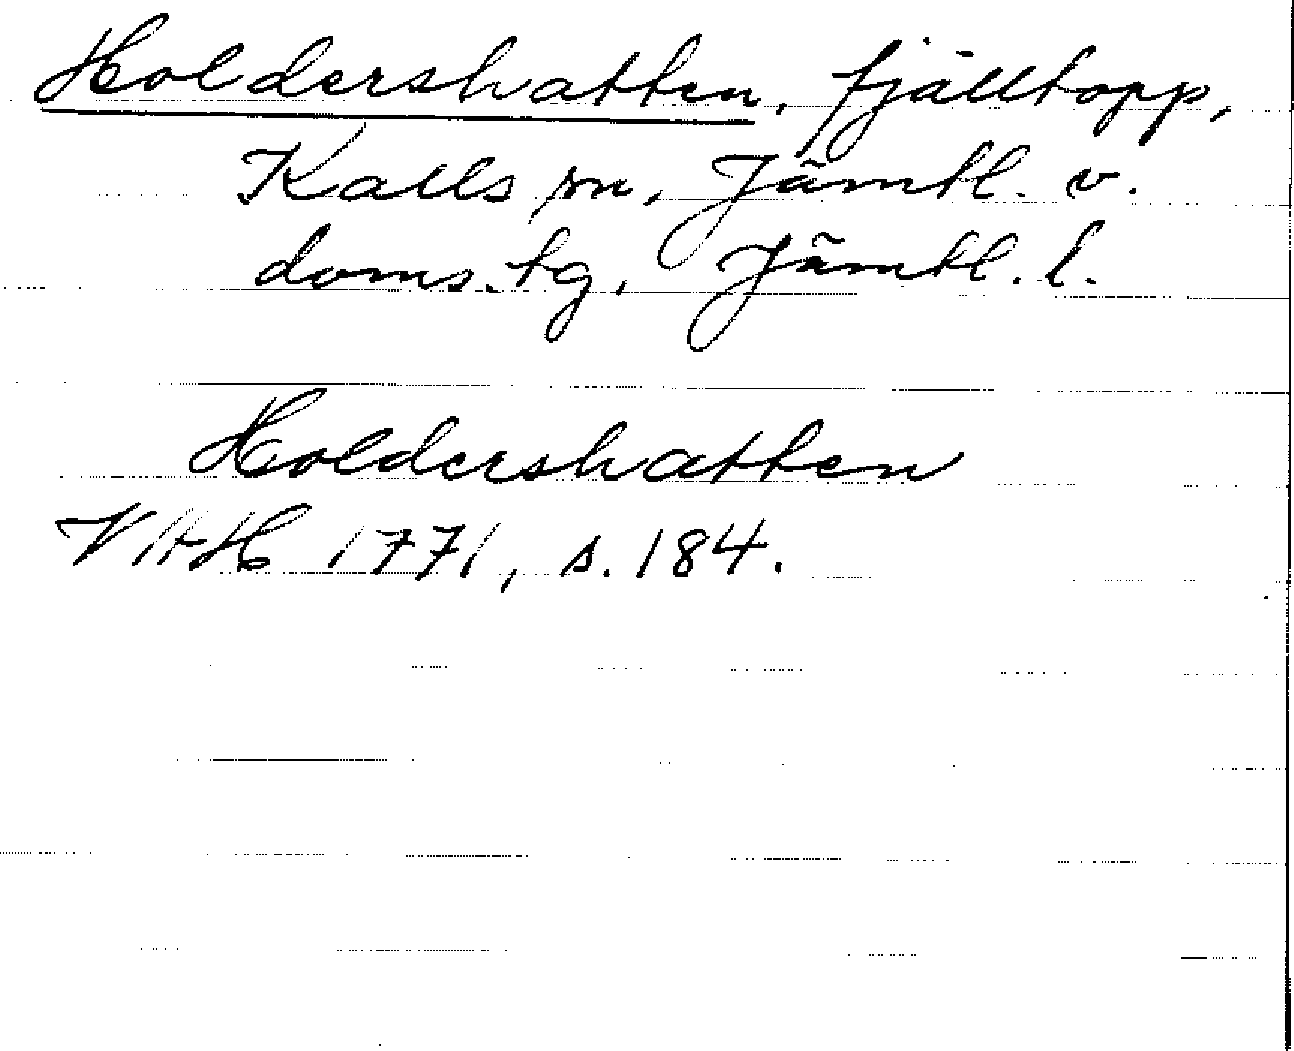 Holdershatten, fjälltopp,
Kalls sn, Jämtl. v.
doms.tg, Jämtl. l.
Holdershatten
VAH 1771, s. 184.